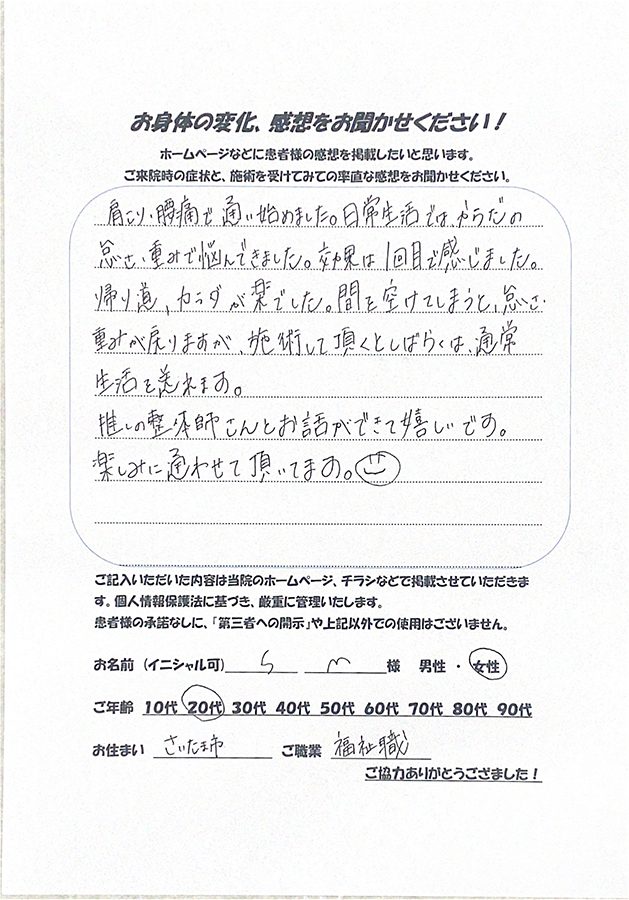 お身体の変化、感想をお聞かせください！
ホームページなどに患者様の感想を掲載したいと思います。
ご来院時の症状と、施術を受けてみての率直な感想をお聞かせください。
肩こり・腰痛で通い始めました。日常生活ではからだの
怠さ・重みで悩んできました。効果は1回目で感じました。
帰り道、カラダが楽でした。間を空けてしまうと、怠さ・
重みが戻りますが、施術して頂くとしばらくは、通常
生活を送れます。
推しの整体師さんとお話ができて嬉しいです。
楽しみに通わせて頂いてます。
ご記入いただいた内容は当院のホームページ、チラシなどで掲載させていただきま
す。個人情報保護法に基づき、厳重に管理いたします。
患者様の承諾なしに、「第三者への開示」や上記以外での使用はございません。
お名前（イニシャル可） S M 様 男性 ・ 女性
ご年齢 10代 20代 30代 40代 50代 60代 70代 80代 90代
お住まい さいたま市 ご職業 福祉職
ご協力ありがとうござました！